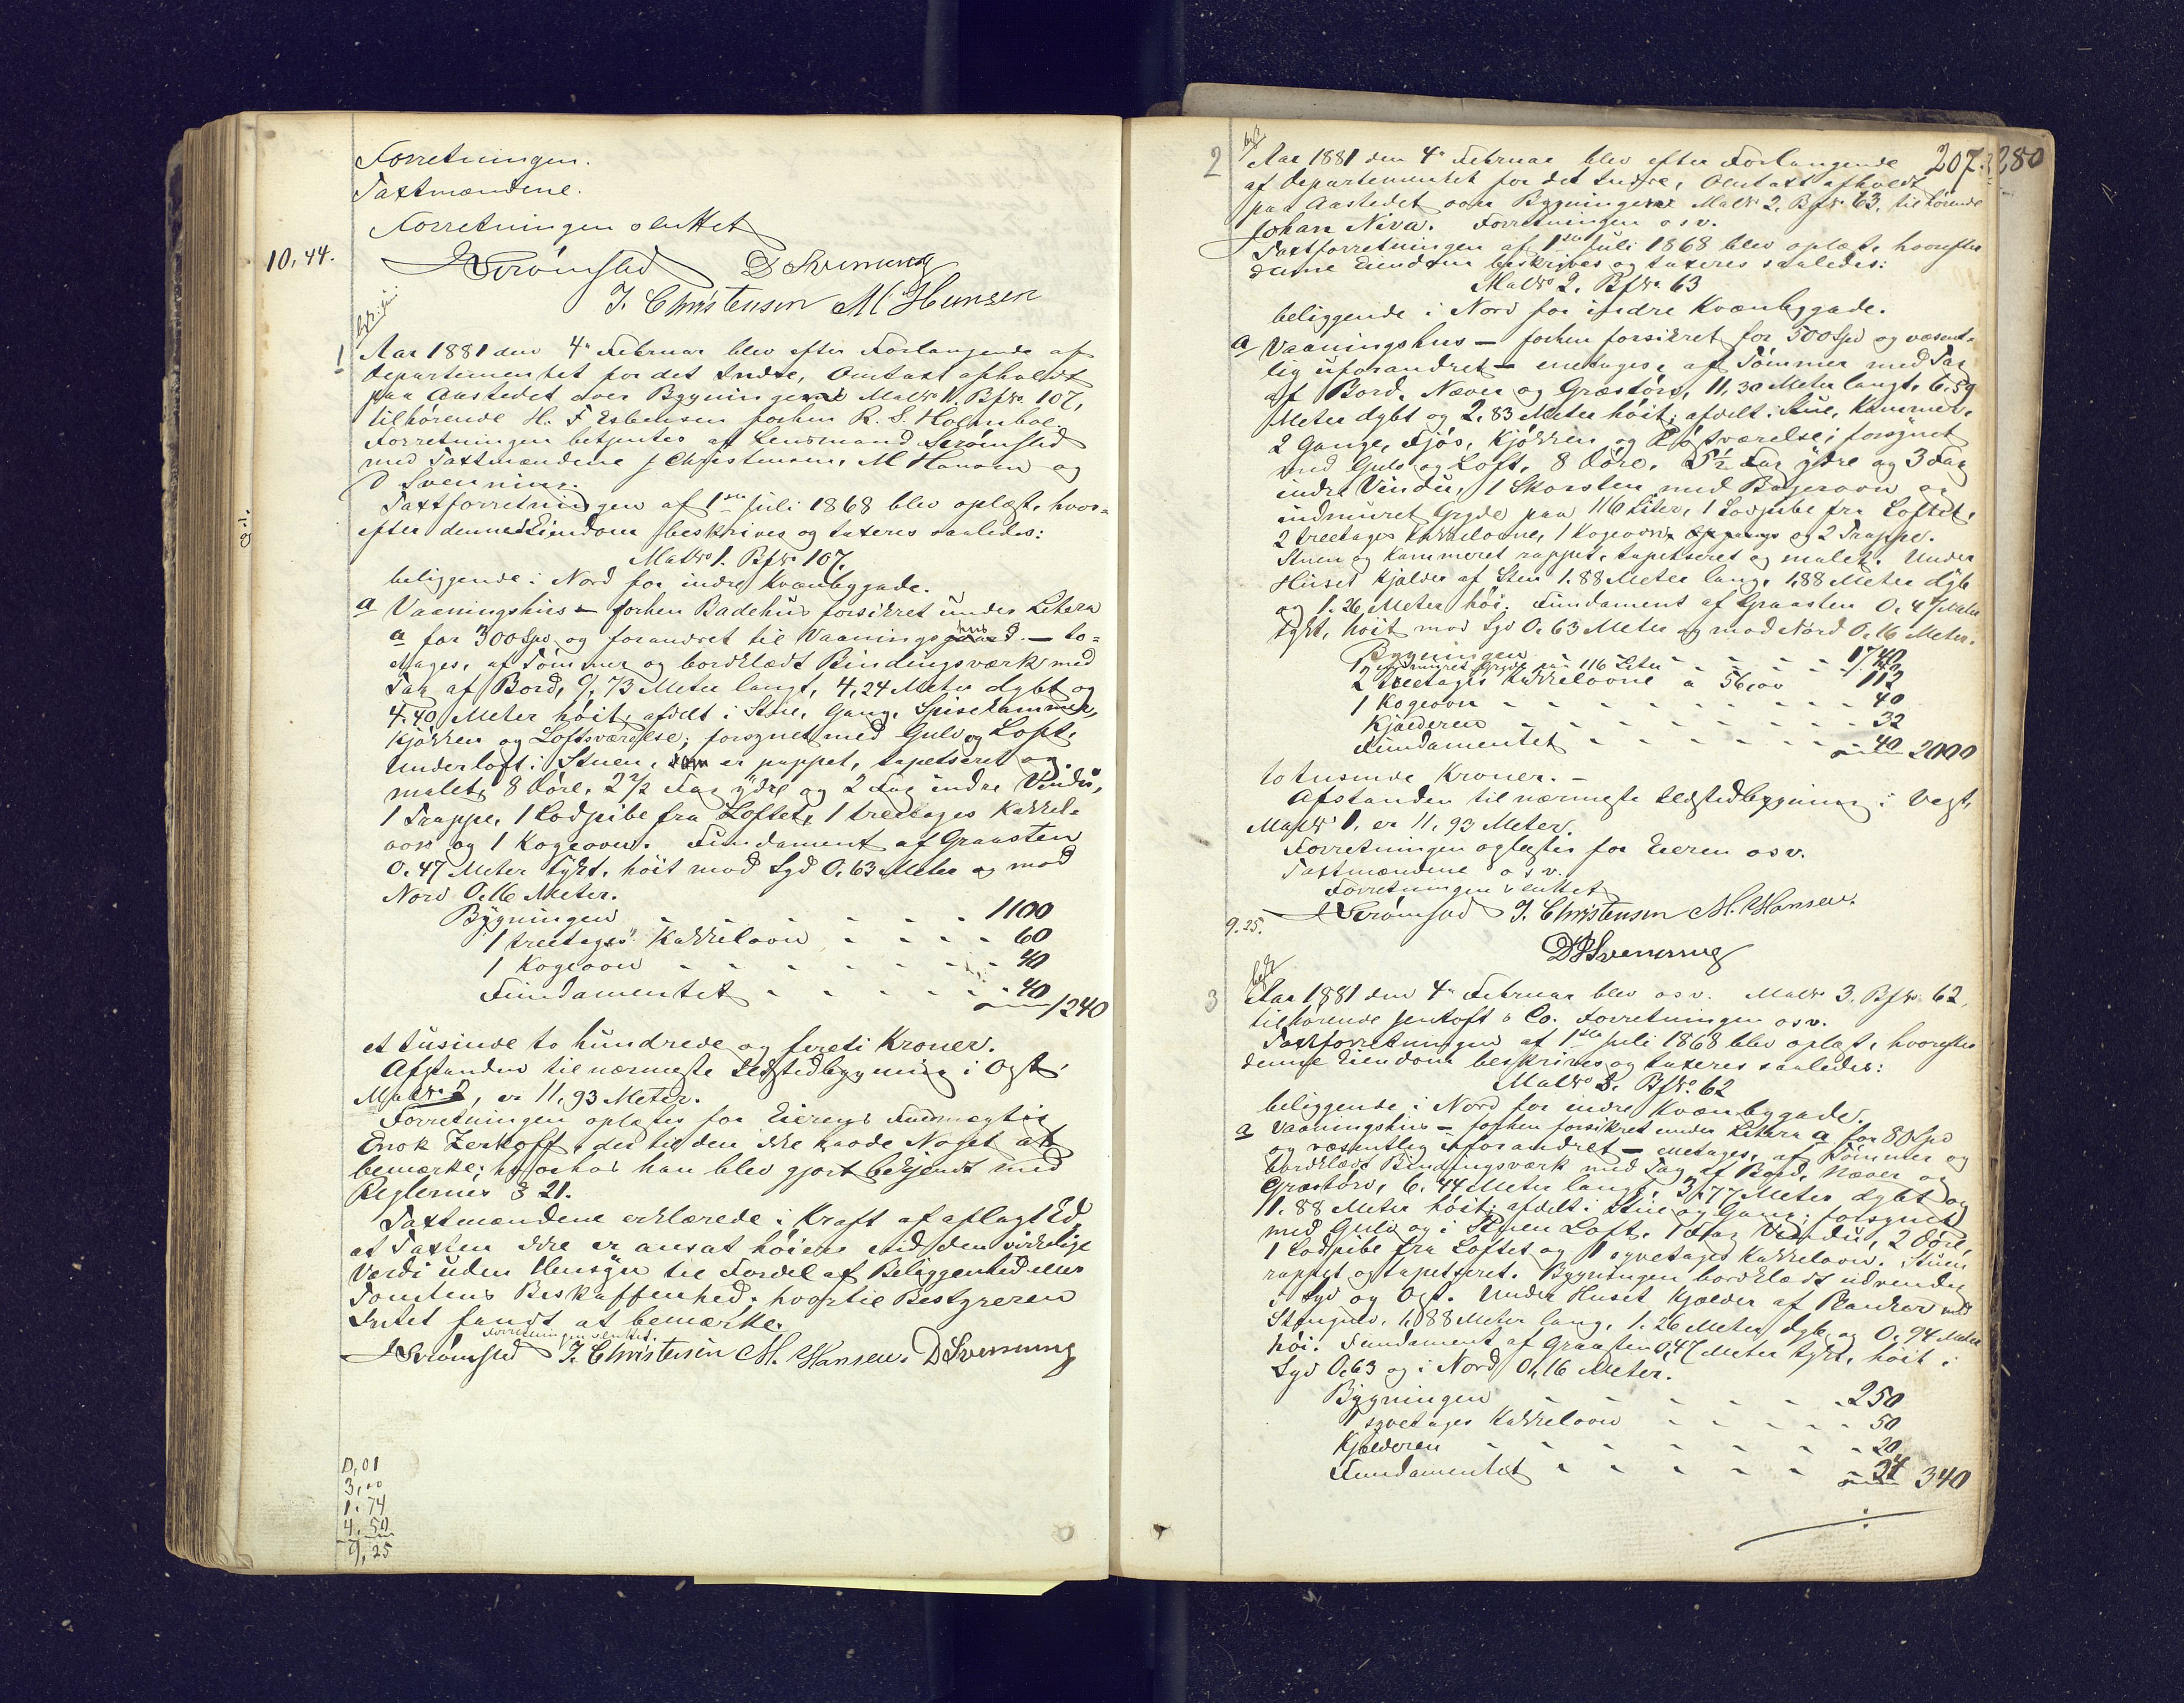 Forretningen.
Taxtmændene.
Forretningen sluttet
10,44.
Strømsted D Svenning
J. Christensen M Hansen
1 Aar 1881 den 4de Februar blev efter Forlangende af
Departementet for det Indre, Omtaxt afholdt
paa Aastedet over Bygningerne Matr No 1. Bf No 107,
tilhørende H. F Esbensen forhen R. S. Holmboe.
Forretningen betjentes af Lensmand Strømsted
med Taxtmændene J Christensen, M Hansen og
D Svenning.
Taxtforretningen af 1ste Juli 1868 blev oplæst, hvor-
efter denne Eiendom beskrives og taxeres saaledes:
Matr No 1. Bf No 107,
beliggende i Nord for indre Kvænbygade.
a Vaaningshus – forhen Badehus forsikret under Litera
a for 300 Spd og forandret til Vaaningshus – to-
etages, af Tømmer og bordklædt Bindingsværk med
Tag af Bord, 9,73 Meter langt, 4,24 Meter dybt og
4,40 Meter høit, afdelt i Stue, Gang, Spisekammer,
Kjøkken og Loftsværelse; forsynet med Gulv og Loft.
Underloft i Stuen, som er pappet, tapetseret og
malet, 8 Døre, 2 2/2 Fag ydre og 2 Fag indre Vindu,
1 Trappe, 1 Lodpibe fra Loftet, 1 treetages Kakkel-
ovn og 1 Kogeovn. Fundament af Graasten
0,47 Meter tykt, høit mod Syd 0,63 Meter og mod
Nord 0,16 Meter.
Bygningen - - - - - 1100
1 treetages Kakkelovn - - - - 60
1 Kogeovn - - - - - - 40
Fundamentet - - - - - - 40
1240
et tusinde to hundrede og firti Kroner.
Afstanden til nærmeste Ildstedbygning i Øst,
Matr No 2, er 11,93 Meter.
Forretningen oplæstes for Eierens Fuldmægtig
Enok Zerkoff, der til den ikke havde Noget at
bemærke; hvorhos han blev gjort bekjendt med
Reglernes § 21.
Taxtmændene erklærede i Kraft af aflagt Ed,
at Taxten ikke er ansat høiere end den virkelige
Værdi uden Hensyn til Fordel af Beliggenhed eller
Tomtens Beskaffenhed, hvortil Bestyreren
Intet fandt at bemærke.
Forretningen sluttet.
Strømsted J. Christensen M. Hansen. D Svenning
0,01
3,00
1,74
4,50
9,25
207. 280
2 Aar 1881 den 4de Februar blev efter Forlangende
af Departementet for det Indre, Omtaxt afholdt
paa Aastedet over Bygningerne Matr No 2. Bf No 63, tilhørende
Johan Niva. Forretningen osv.
Taxtforretningen af 1ste Juli 1868 blev oplæst, hvorefter
denne Eiendom beskrives og taxeres saaledes:
Matr No 2. Bf No 63
beliggende i Nord for indre Kvænbygade.
a Vaaningshus – forhen forsikret for 500 Spd og væsent-
lig uforandret – enetages, af Tømmer med Tag
af Bord, Næver og Græstørv, 11,30 Meter langt, 6,59
Meter dybt og 2,83 Meter høit; afdelt i Stue, Kammer,
2 Gange, Fjøs, Kjøkken og Loftsværelse; forsynet
med Gulv og Loft, 8 Døre, 5 1/2 Fag ydre og 3 Fag
indre Vindu, 1 Skorsten med Bagerovn og
indmuret Gryde paa 116 Liter, 1 Lodpibe fra Loftet,
2 treetages Kakkelovne, 1 Kogeovn og 2 Trappe.
Stuen og Kammeret pappet, tapetseret og malet. Under
Huset Kjælder af Sten 1.88 Meter lang, 1,88 Meter dyb
og 1.26 Meter høi. Fundament af Graasten 0,47 Meter
tykt, høit mod Syd 0,63 Meter og mod Nord 0,16 Meter.
Bygningen - - - - 1740
1 indmuret Gryde paa 116 Liter - - - -
2 treetages Kakkelovne à 56,00 - 112
1 Kogeovn - - - - - - - 40
Kjælderen - - - - - - - 32
Fundamentet - - - - - - 40 2000
to tusinde Kroner. –
Afstanden til nærmeste Ildstedbygning i Vest,
Matr No 1, er 11,93 Meter.
Forretningen oplæstes for Eieren osv.
Taxtmændene osv.
Forretningen sluttet
9.25.
Strømsted J. Christensen M. Hansen.
D Svenning
3 Aar 1881 den 4de Februar blev osv. Matr No 3. Bf No 62,
tilhørende Jentoft & Co. Forretningen osv.
Taxtforretningen af 1ste Juli 1868 blev oplæst, hvorefter
denne Eiendom beskrives og taxeres saaledes:
Matr No 3. Bf No 62
beliggende i Nord for indre Kvænbygade.
a Vaaningshus – forhen forsikret under Litera a for 80 Spd
og væsentlig uforandret – enetages, af Tømmer og
bordklædt Bindingsværk med Tag af Bord, Næver og
Græstørv, 6,44 Meter langt, 3,77 Meter dybt og
1.88 Meter høit; afdelt i Stue og Gang; forsynet
med Gulv og i Stuen Loft, 1 Fag Vindu, 2 Døre,
1 Lodpibe fra Loftet og 1 Kakkelovn. Stuen
pappet og tapetseret. Bygningen bordklædt udvendig
i Syd og Øst. Under Huset Kjælder af Planker med
Stengulv, 1,88 Meter lang, 1.26 Meter dyb og 0,94 Meter
høi. Fundament af Graasten 0,47 Meter tykt, høit i
Syd 0,63 og i Nord 0,16 Meter.
Bygningen - - - - - - 250
1 Kakkelovn - - - - - 50
Kjælderen - - - - - - - 20
Fundamentet - - - - - - 340